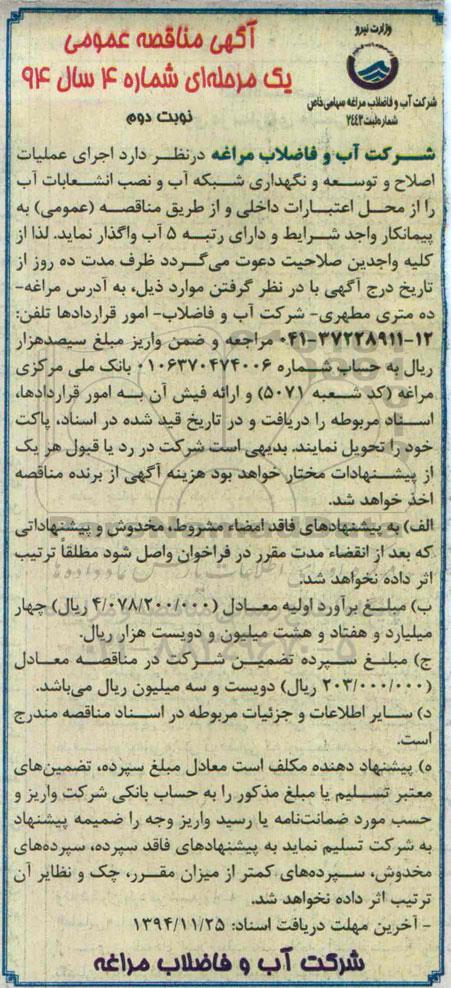 وزارت نیرو
شرکت آب و فاضلاب مراغه سهامی خاص
شماره ثبت ۷۴۴۳
آگهی مناقصه عمومی
یک مرحله‌ای شماره ۴ سال ۹۴
نوبت دوم
شرکت آب و فاضلاب مراغه درنظر دارد اجرای عملیات
اصلاح و توسعه و نگهداری شبکه آب و نصب انشعابات آب
را از محل اعتبارات داخلی و از طریق مناقصه (عمومی) به
پیمانکار واجد شرایط و دارای رتبه ۵ آب واگذار نماید. لذا از
کلیه واجدین صلاحیت دعوت می‌گردد ظرف مدت ده روز از
تاریخ درج آگهی با در نظر گرفتن موارد ذیل، به آدرس مراغه-
ده متری مطهری- شرکت آب و فاضلاب- امور قراردادها تلفن:
۱۲-۳۷۲۲۸۹۱۱-۰۴۱ مراجعه و ضمن واریز مبلغ سیصدهزار
ریال به حساب شماره ۰۱۰۶۳۷۰۴۷۴۰۰۶ بانک ملی مرکزی
مراغه (کد شعبه ۵۰۷۱) و ارائه فیش آن به امور قراردادها،
اسناد مربوطه را دریافت و در تاریخ قید شده در اسناد، پاکت
خود را تحویل نمایند. بدیهی است شرکت در رد یا قبول هر یک
از پیشنهادات مختار خواهد بود هزینه آگهی از برنده مناقصه
اخذ خواهد شد.
الف) به پیشنهادهای فاقد امضاء مشروط، مخدوش و پیشنهاداتی
که بعد از انقضاء مدت مقرر در فراخوان واصل شود مطلقاً ترتیب
اثر داده نخواهد شد.
ب) مبلغ برآورد اولیه معادل (۴/۰۷۸/۲۰۰/۰۰۰ ریال) چهار
میلیارد و هفتاد و هشت میلیون و دویست هزار ریال.
ج) مبلغ سپرده تضمین شرکت در مناقصه معادل
(۲۰۳/۰۰۰/۰۰۰ ریال) دویست و سه میلیون ریال می‌باشد.
د) سایر اطلاعات و جزئیات مربوطه در اسناد مناقصه مندرج
است.
ه) پیشنهاد دهنده مکلف است معادل مبلغ سپرده، تضمین‌های
معتبر تسلیم یا مبلغ مذکور را به حساب بانکی شرکت واریز و
حسب مورد ضمانت‌نامه یا رسید واریز وجه را ضمیمه پیشنهاد
به شرکت تسلیم نماید به پیشنهادهای فاقد سپرده، سپرده‌های
مخدوش، سپرده‌های کمتر از میزان مقرر، چک و نظایر آن
ترتیب اثر داده نخواهد شد.
- آخرین مهلت دریافت اسناد: ۱۳۹۴/۱۱/۲۵
شرکت آب و فاضلاب مراغه